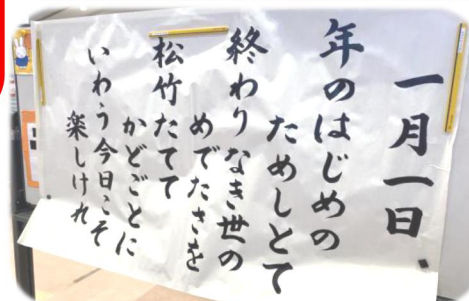 一月一日
年のはじめの
ためしとて
終わりなき世の
めでたさを
松竹たてて
かどごとに
いわう今日こそ
楽しけれ